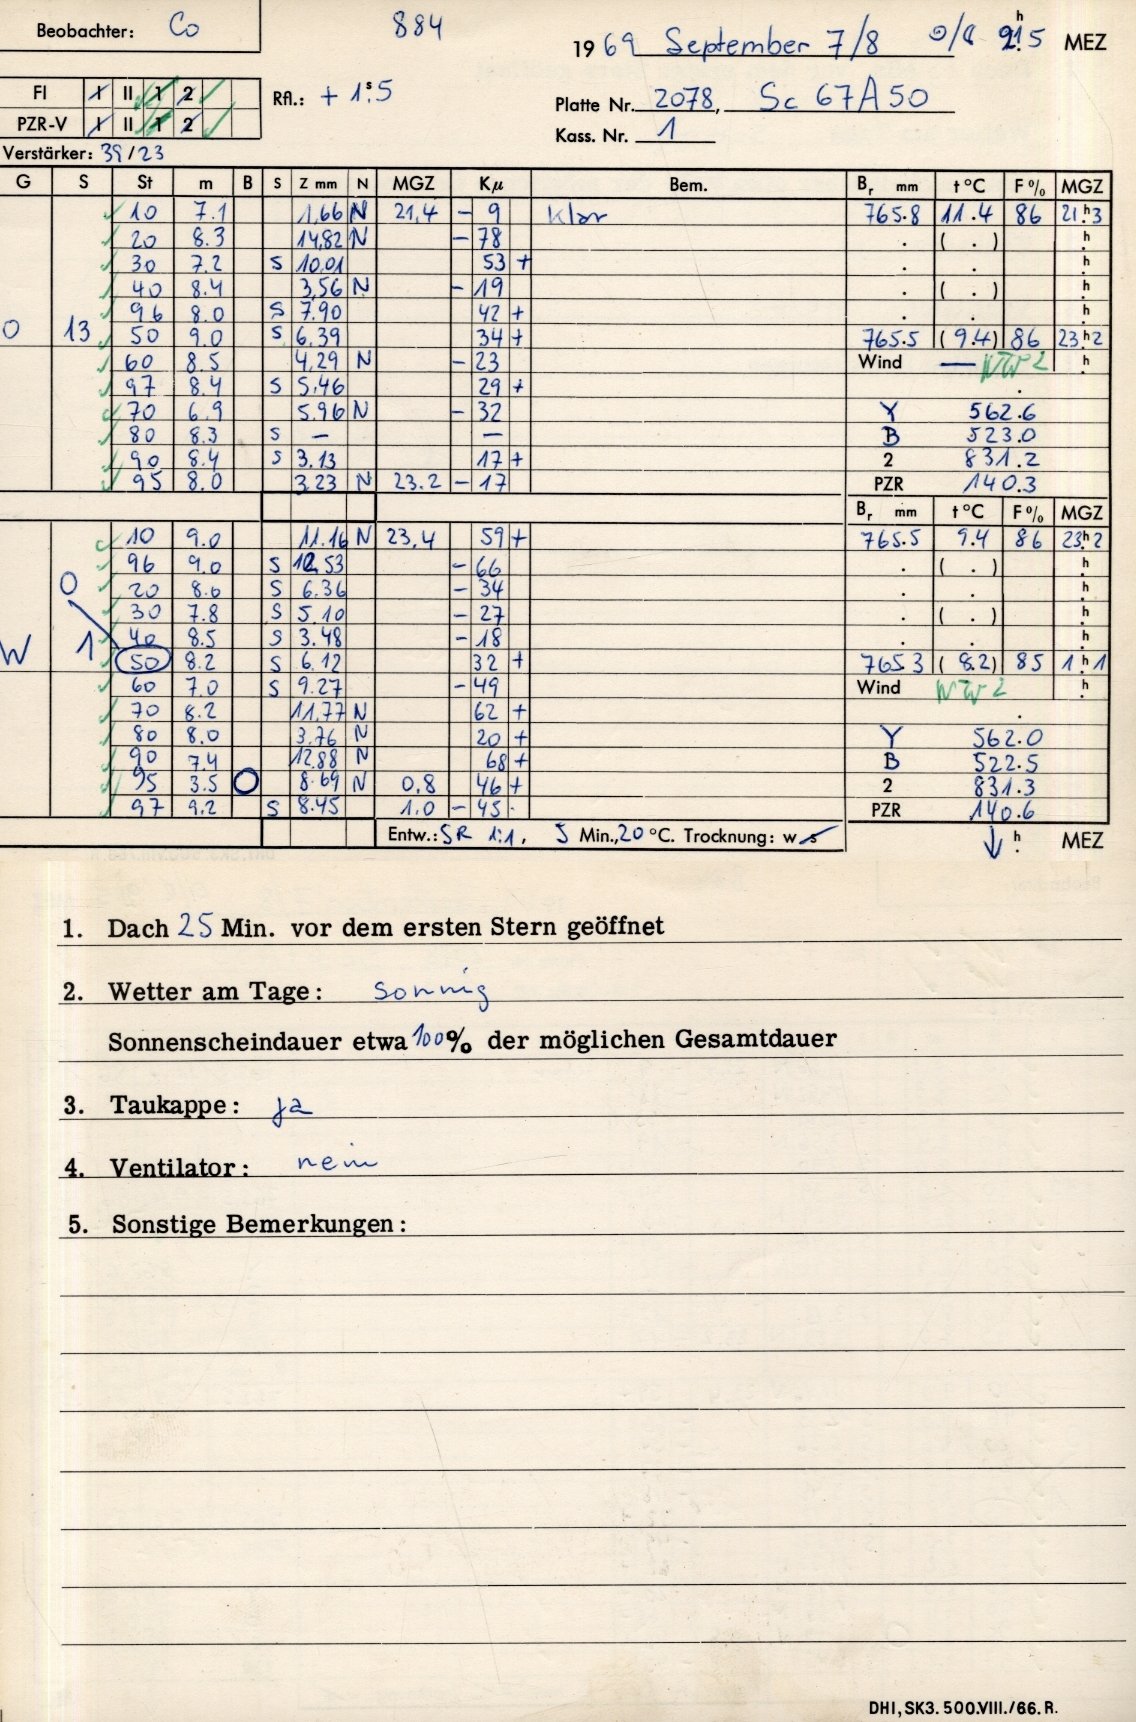 Beobachter: Co 884 1969 September 7/8 0/6 21h.5 MEZ
FI I II 1 2
PZR-V I II 1 2
Rfl.: + 1s.5
Platte Nr. 2078, Sc 67A50
Kass. Nr. 1
Verstärker: 39/23
G S St m B S Z mm N MGZ Kµ Bem. Br mm t °C F % MGZ
10 7.1 1,66 N 21,4 - 9 klar 765.8 11.4 86 21h3
20 8.3 14,82 N - 78 . ( . ) h
30 7.2 S 10.01 53 + . . h
40 8.4 3,56 N - 19 . ( . ) h
96 8.0 S 7.90 42 + . . h
O 13 50 9.0 S 6.39 34 + 765.5 (9.4) 86 23h2
60 8.5 4,29 N - 23 Wind — NW 2 h
97 8.4 S 5.46 29 + .
70 6.9 5.96 N - 32 Y 562.6
80 8.3 S — — B 523.0
90 8.4 S 3.13 17 + 2 831.2
95 8.0 3.23 N 23.2 - 17 PZR 140.3
Br mm t °C F % MGZ
10 9.0 11.16 N 23,4 59 + 765.5 9.4 86 23h2
96 9.0 S 12.53 - 66 . ( . ) h
O 20 8.0 S 6.36 - 34 . . h
30 7.8 S 5.10 - 27 . ( . ) h
40 8.5 S 3.48 - 18 . . h
W 1 50 8.2 S 6.12 32 + 765.3 ( 8.2) 85 1h1
60 7.0 S 9.27 - 49 Wind NW 2 h
70 8.2 11.77 N 62 + .
80 8.0 3.76 N 20 + Y 562.0
90 7.4 12.88 N 68 + B 522.5
95 3.5 O 8.69 N 0,8 46 + 2 831.3
97 9.2 S 8.45 1.0 - 45 PZR 140.6
Entw.: SR 1:1, 5 Min., 20 °C. Trocknung: w s h. MEZ
1. Dach 25 Min. vor dem ersten Stern geöffnet
2. Wetter am Tage: sonnig
Sonnenscheindauer etwa 100% der möglichen Gesamtdauer
3. Taukappe: ja
4. Ventilator: nein
5. Sonstige Bemerkungen:
DHI, SK3. 500.VIII./66. R.